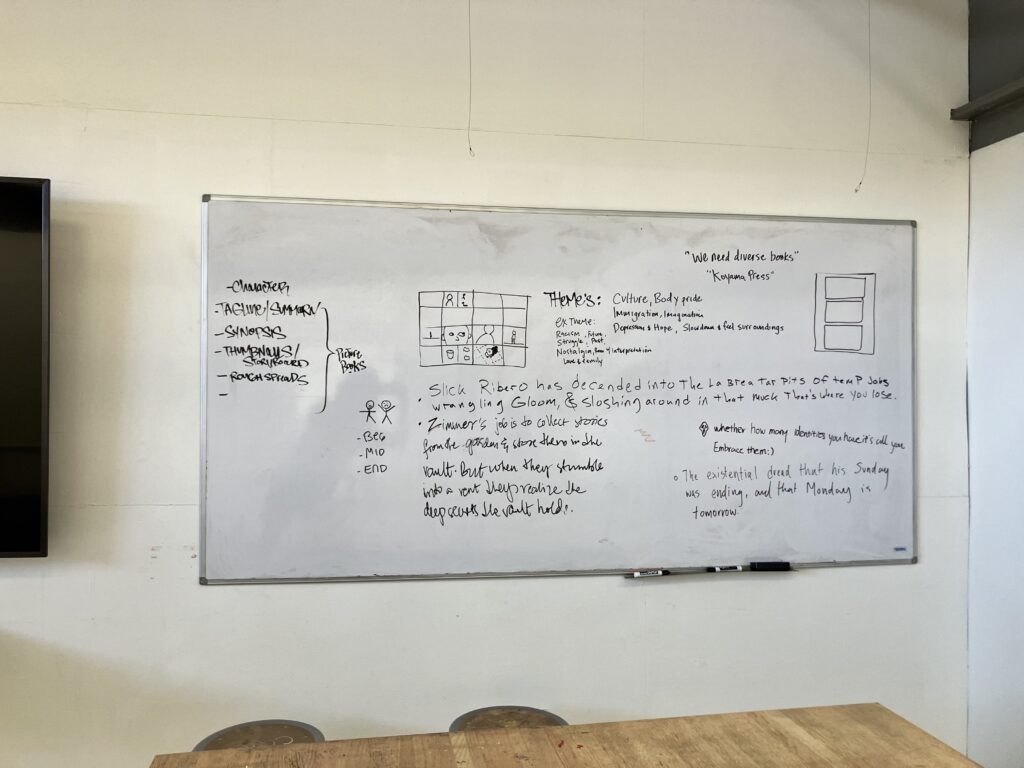 -CHARACTER
-TAGLINE/SUMMARY
-SYNOPSIS
-THUMBNAILS/
STORYBOARD
-ROUGH SPREADS
-
Picture
Books
-BEG
-MID
-END
THEME'S:
Culture, Body pride
Immigration, Imagination
Depression & Hope, Slow down & feel surroundings
EX THEME:
Racism, Future,
Struggle, Past,
Nostalgia, interpretation
Love & family
"We need diverse books"
"Koyama Press"
• Slick Ribero has decended into The La Brea Tar Pits of temp Jobs
wrangling Gloom, & sloshing around in that muck That's where you lose.
• Zimmer's job is to collect stories
from the garden & store them in the
vault. But when they stumble
into a vent they realize the
deep secrets the vault holds.
whether how many identities you have it's all you.
Embrace them:)
o The existential dread that his Sunday
was ending, and that Monday is
tomorrow.